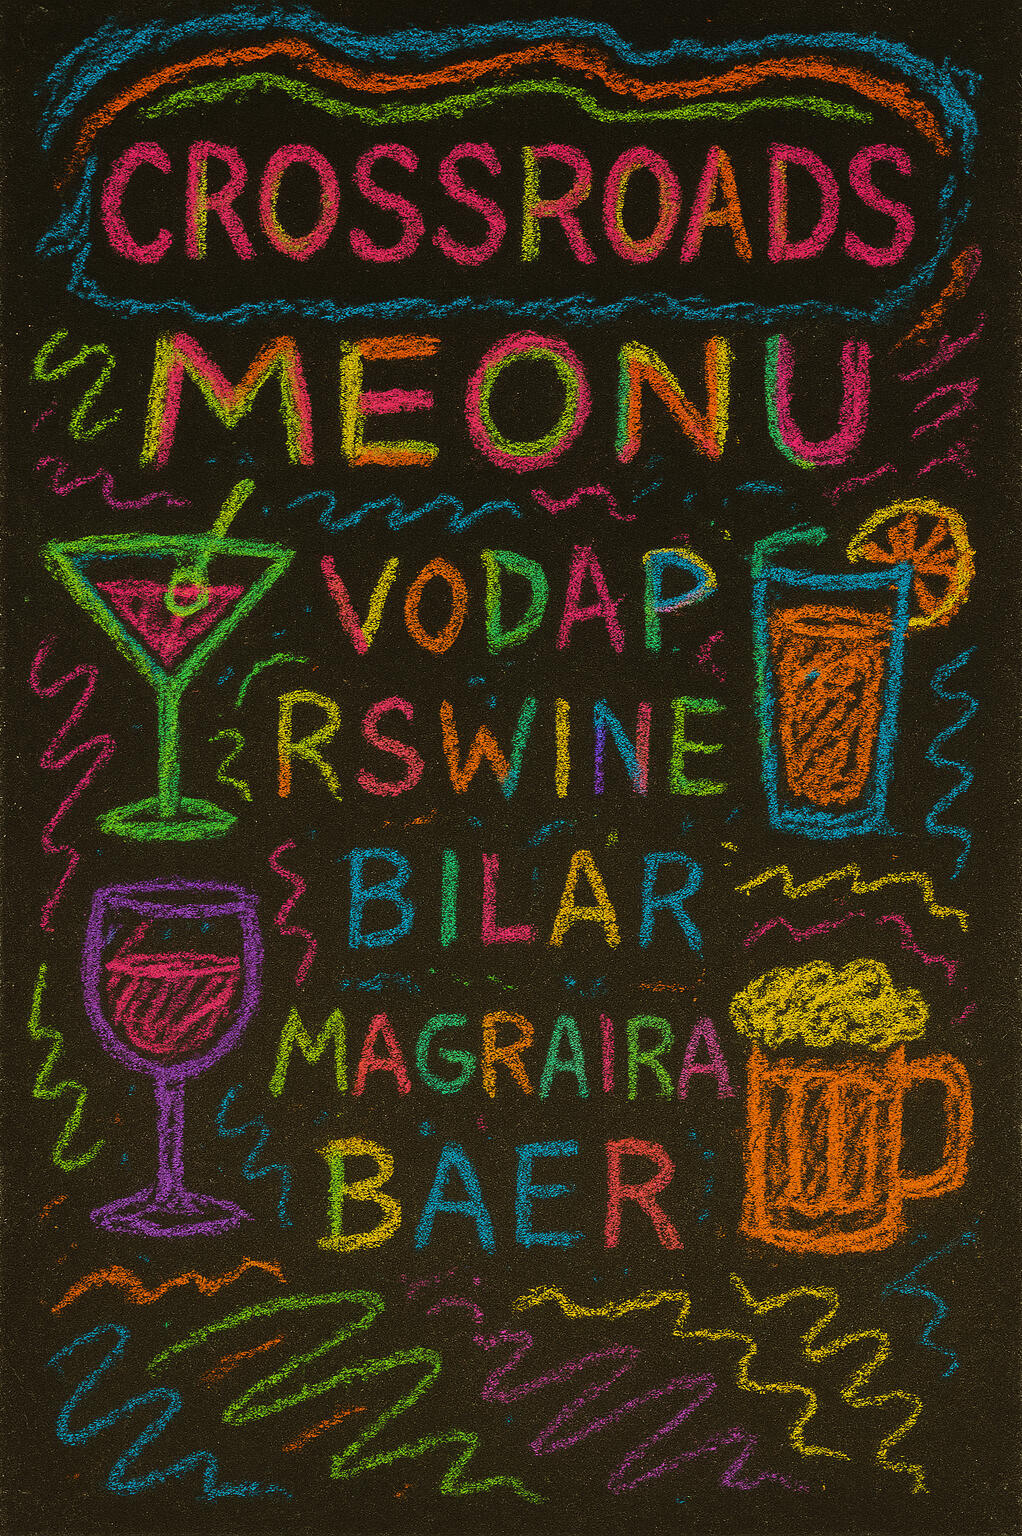 CROSSROADS
MEONU
VODAP
RSWINE
BILAR
MAGRAIRA
BAER